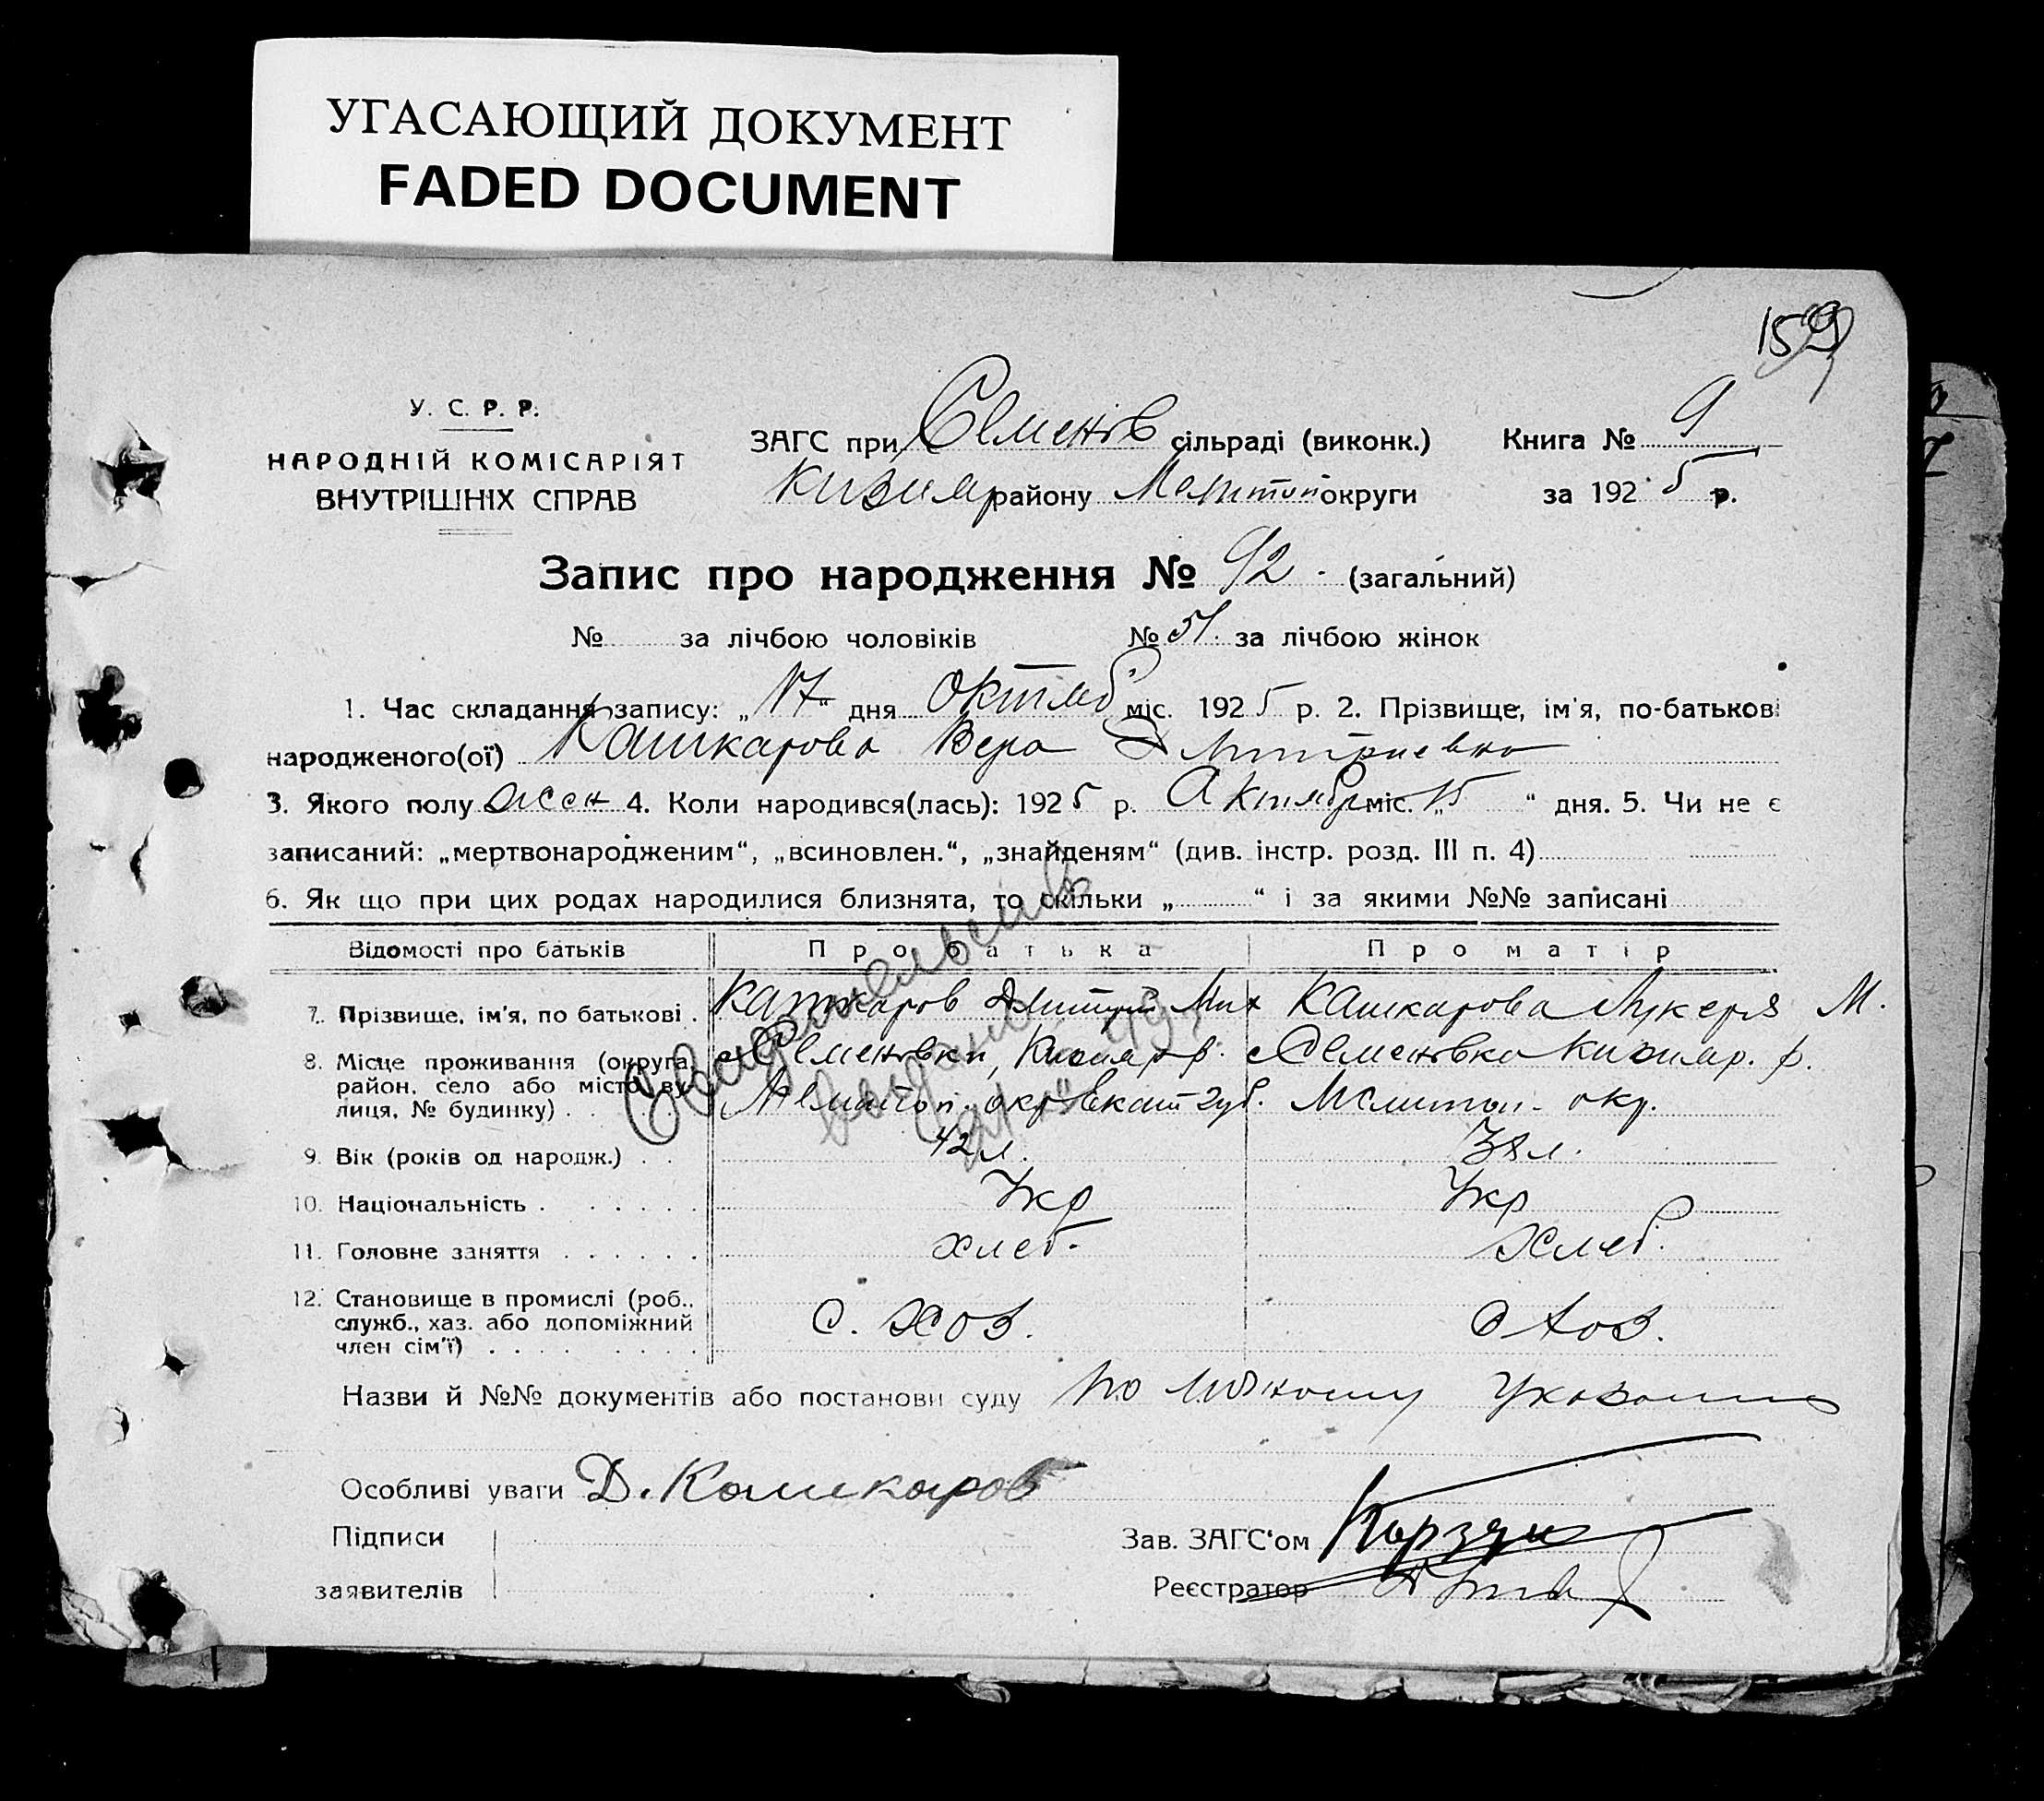 УГАСАЮЩИЙ ДОКУМЕНТ
FADED DOCUMENT
159
У. С. Р. Р.
НАРОДНІЙ КОМІСАРІЯТ
ВНУТРІШНІХ СПРАВ
ЗАГС при Семенов сільраді (виконк.) Книга № 9
Кизияр району Мелитоп округи за 1925 р.
Запис про народження № 92. (загальний)
№ за лічбою чоловіків № 51. за лічбою жінок
1. Час складання запису: „17“ дня Октяб міс. 1925 р. 2. Прізвище, ім'я, по-батькові
народженого(ої) Кашкарова Вера Дмитриевна
3. Якого полу жен 4. Коли народився(лась): 1925 р. Октября міс. „15“ дня. 5. Чи не є
записаний: „мертвонародженим“, „всиновлен.“, „знайденям“ (див. інстр. розд. III п. 4)
6. Як що при цих родах народилися близнята, то скільки „ “ і за якими №№ записані
Відомості про батьків Про батька Про матір
7. Прізвище, ім'я, по батькові . Кашкаров Дмитрий Мих Кашкарова Лукерья М.
8. Місце проживання (округа, район, село або місто, вулиця, № будинку) . Семеновки, Кизияр р. Семеновка Кизияр. р.
Мелитоп. окр Екат губ. Мелитоп. окр.
Свидетельство
выдано
9. Вік (років од народж.) . . 42 л. 38 л.
10. Національність . Укр Укр
11. Головне заняття хлеб. Хлеб.
12. Становище в промислі (роб.,
служб., хаз. або допоміжний
член сім'ї) С. Хоз. С Хоз.
Назви й №№ документів або постанови суду по личному Указанию
Особливі уваги Д. Кашкаров
Підписи
заявителів
Зав. ЗАГС'ом
Реєстратор